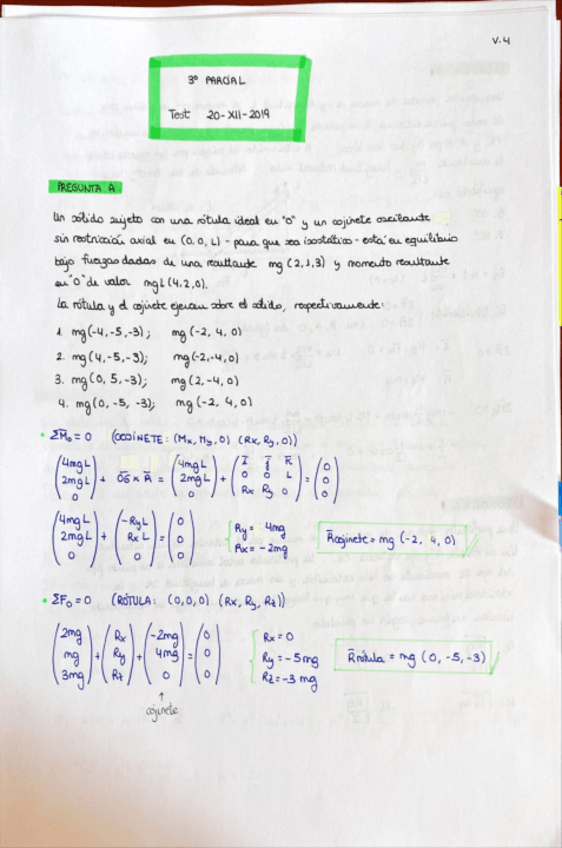 V.4
3º PARCIAL
Test 20-XII-2019
PREGUNTA A
Un sólido sujeto con una rótula ideal en "O" y un cojinete oscilante
sin restricción axial en (0,0,L) - para que sea isostático - está en equilibrio
bajo fuerzas dadas de una resultante mg (2,1,3) y momento resultante
en "O" de valor mgL(4,2,0).
La rótula y el cojinete ejercen sobre el sólido, respectivamente:
1. mg(-4,-5,-3); mg(-2, 4, 0)
2. mg(4,-5,-3); mg(-2,-4,0)
3. mg(0, 5,-3); mg(2,-4,0)
4. mg(0, -5, -3); mg(-2, 4, 0)
ΣM̄o = 0 (COJINETE: (Mx, My, 0) (Rx, Ry, 0))
(4mgL 2mgL 0) + O̅G̅ x R̄ = (4mgL 2mgL 0) + (ī j̄ k̄ 0 0 L Rx Ry 0) = (0 0 0)
(4mgL 2mgL 0) + (-RyL RxL 0) = (0 0 0) { Ry = 4mg Rx = -2mg R̄cojinete = mg (-2, 4, 0)
ΣFo = 0 (RÓTULA: (0,0,0) (Rx, Ry, Rz))
(2mg mg 3mg) + (Rx Ry Rz) + (-2mg 4mg 0) = (0 0 0) { Rx = 0 Ry = -5mg Rz = -3 mg R̄rótula = mg (0, -5, -3)
↑
cojinete